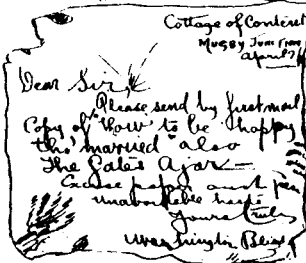 Cottage of Content
Mugby Junction
April 7
Dear Sir,
Please send by first mail
Copy of "How to be happy
tho' married" also
The Gates Ajar —
Excuse paper and pen
unavoidable haste
Yours truly
Washington Bliss